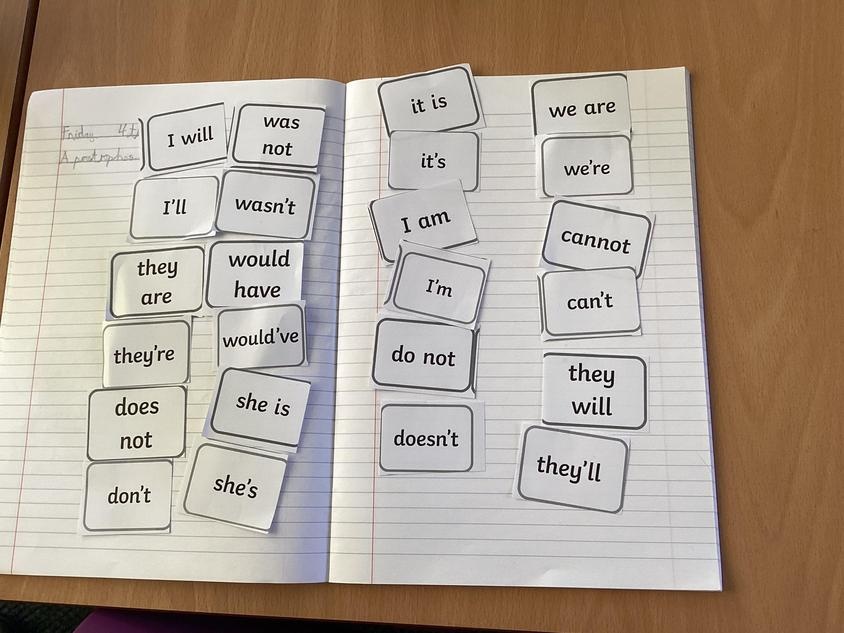 Friday 4th
Apostrophes
I will
I'll
they
are
they're
does
not
don't
was
not
wasn't
would
have
would've
she is
she's
it is
it's
I am
I'm
do not
doesn't
we are
we're
cannot
can't
they
will
they'll